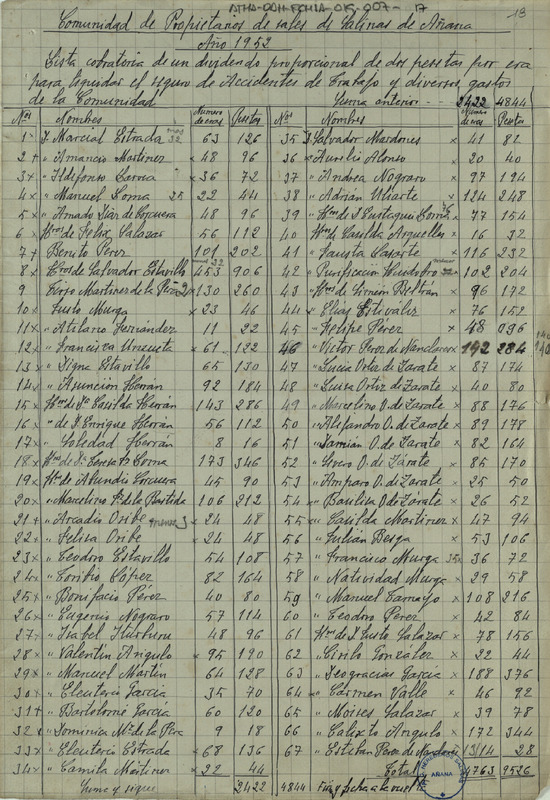 ATHA-DOH-FCHIA-015-007-17
13
Comunidad de Propietarios de sales de Salinas de Añana
Año 1952
Lista cobratoria de un dividendo proporcional de dos pesetas por era
para liquidar el seguro de Accidentes de Trabajo y diversos gastos
de la Comunidad
Suma anterior - 2422 4844
Nos Nombres Número de eras Pesetas
1 D. Marcial Estrada 63 126
2 " Amancio Martinez 48 96
3 " Ildefonso Larrea 36 72
4 " Manuel Loma 25 22 44
5 " Amado Diaz de Corcuera 48 96
6 Hros de Felix Salazar 56 112
7 Benito Perez 101 202
8 Hros de Salvador Estavillo 453 906
9 Tirso Martinez de la Peña 130 260
10 " Justo Murga 23 46
11 " Atilano Fernández 11 22
12 " Francisca Urrueta 61 122
13 " Signa Estavillo 65 130
14 " Asunción Herrán 92 184
15 Hros de Da Casilda Herrán 143 286
16 " de D. Enrique Herran 56 112
17 " Soledad Herrán 8 16
18 Hros de Da Teresa F. Loma 173 346
19 Hros de Abundio Corcuera 45 90
20 " Marcelino Fz de la Bastida 106 212
21 " Arcadio Oribe 24 48
22 " Felisa Oribe 24 48
23 " Teodoro Estavillo 54 108
24 " Toribio López 82 164
25 " Bonifacio Pérez 40 80
26 " Eugenio Nograro 57 114
27 " Isabel 48 96
28 " Valentin Angulo 95 190
29 " Manuel Martin 64 128
30 " Eleuterio Garcia 35 70
31 " Bartolomé Garcia 60 120
32 " Dominica Mz de la Pera 9 18
33 " Eleuterio Estrada 68 136
34 " Camila Martinez 22 44
Suma y sigue 2422 4844
Nos Nombres Número de eras Pesetas
35 D. Salvador Mardones 41 82
36 " Aurelio Alonso 20 40
37 " Andrea Nograro 97 194
38 " Adrian Uriarte 124 248
39 " Hros de D. Eustaquio Loma 77 154
40 " Casilda Arguelles 16 32
41 " Fausta Lasarte 116 232
42 " Purificación 102 204
43 " Hros de Simeón Beltrán 96 172
44 " Elias Estibaliz 76 152
45 " Felipe Pérez 48 096
46 " Victor Perez de Nanclares 192 284
47 " Lucia Ortiz de Zarate 87 174
48 " Luisa Ortiz de Zarate 40 80
49 " Marcelino O. de Zarate 88 176
50 " Alejandro O. de Zarate 89 178
51 " Damián O. de Zarate 82 164
52 " Severo O. de Zárate 85 170
53 " Amparo O. de Zarate 25 50
54 " Basilisa O. de Zarate 26 52
55 " Casilda Martinez 47 94
56 " Julian Berga 53 106
57 " Francisco Murga 36 72
58 " Natividad Murga 29 58
59 " Manuel Tamayo 108 216
60 " Teodoro Perez 42 84
61 Hros de D. Justo Salazar 78 156
62 " Cirilo González 22 44
63 " Deogracias Garcia 188 376
64 " Carmen Valle 46 92
65 " Moises Salazar 39 78
66 " Calixto Angulo 172 344
67 " Esteban Perez de Nanclares 13/14 28
Total 4763 9526
AÑANA